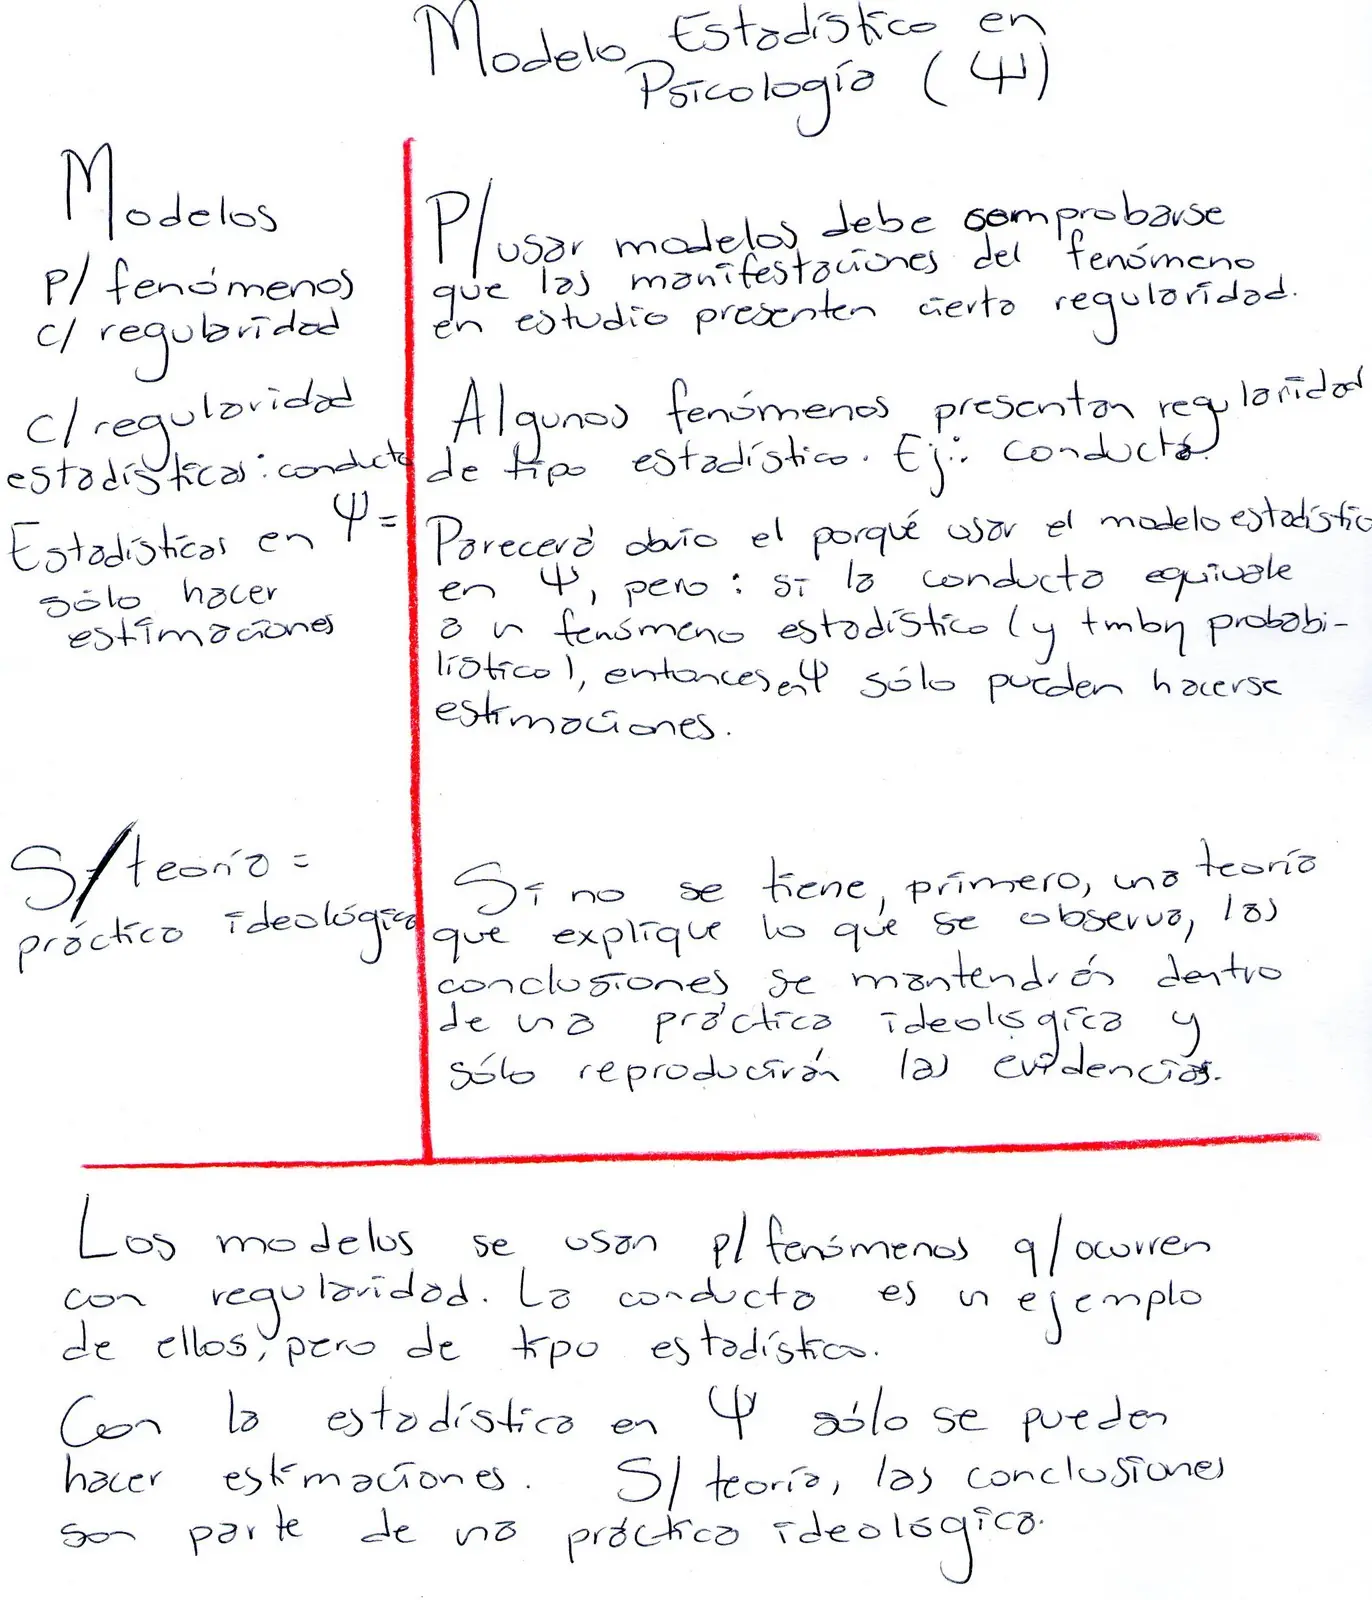 Modelo Estadístico en
Psicología (Ψ)
Modelos
p/ fenómenos
c/ regularidad
c/ regularidad
estadísticas: conducta
Estadísticas en Ψ=
sólo hacer
estimaciones
S/ teoría =
práctica ideológica
P/ usar modelos debe comprobarse
que las manifestaciones del fenómeno
en estudio presenten cierta regularidad.
Algunos fenómenos presentan regularidad
de tipo estadístico. Ej.: conducta.
Parecerá obvio el porqué usar el modelo estadístic
en Ψ, pero: si la conducta equivale
a un fenómeno estadístico (y tmbn probabi-
lístico), entonces en Ψ sólo pueden hacerse
estimaciones.
Si no se tiene, primero, una teoría
que explique lo que se observa, las
conclusiones se mantendrán dentro
de una práctica ideológica y
sólo reproducirán las evidencias.
Los modelos se usan p/ fenómenos q/ ocurren
con regularidad. La conducta es un ejemplo
de ellos, pero de tipo estadístico.
Con la estadística en Ψ sólo se pueden
hacer estimaciones. S/ teoría, las conclusiones
son parte de una práctica ideológica.